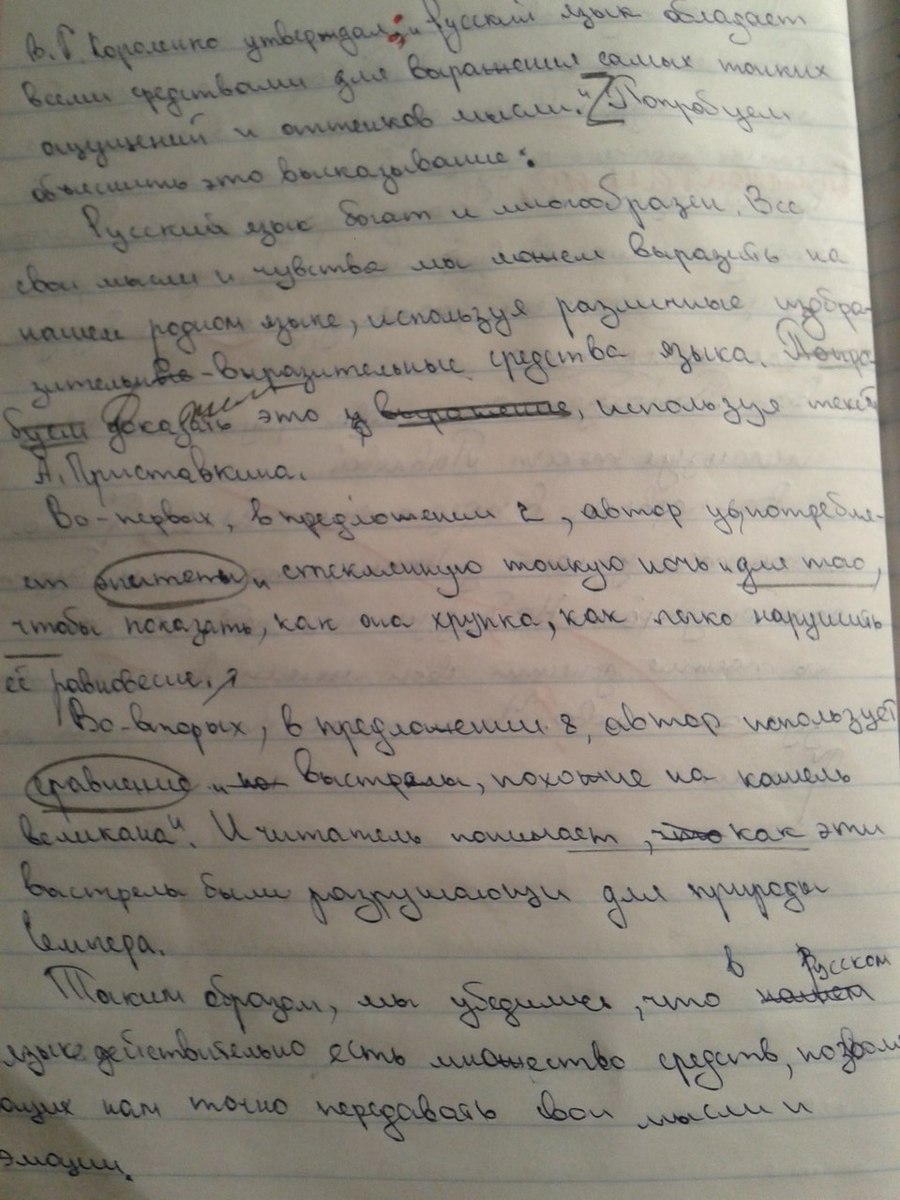 В.Г. Короленко утверждал: "Русский язык обладает
всеми средствами для выражения самых тонких
ощущений и оттенков мысли." Попробуем
объяснить это высказывание:
Русский язык богат и многообразен. Все
свои мысли и чувства мы можем выразить на
нашем родном языке, используя различные изобра-
зительно-выразительные средства языка. Попро
буем доказать это и выражение, используя текст
А. Приставкина.
Во-первых, в предложении 2, автор употребля-
ет эпитеты "стеклянную тонкую ночь" для того,
чтобы показать, как она хрупка, как легко нарушить
её равновесие.
Во-вторых, в предложении 8, автор использует
сравнение "на выстрелы, похожие на кашель
великана". И читатель понимает, что как эти
выстрелы были разрушающи для природы
в Русском
Таким образом, мы убедились, что
языке действительно есть множество средств, позвол
ющих нам точно передавать свои мысли и
эмоции.